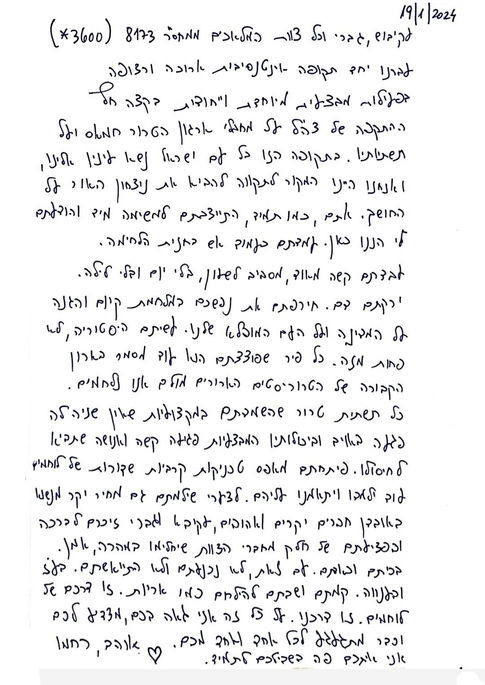 19/1/2024
עקיבוש, גברי וכל צוות המלאכים ממחס"ר 8173 (3600*)
עברנו יחד תקופה אינטנסיבית ארוכה ורצופה
בפעילות מבצעית מיוחדת וייחודית בקצה חץ
ההתקפה של צה"ל על מחבלי ארגון הטרור חמאס ועל
תשתיותיו. בתקופה הזו כל עם ישראל נשא עיניו אלינו,
ואנחנו היינו המקור לתקווה להביא את ניצחון האור על
החושך. אתם, כמו תמיד, התייצבתם למשימה מיד והודעתם
לי הננו כאן. עמדתם כעמוד אש בחנית הלחימה.
עבדתם קשה מאוד, מסביב לשעון, בלי יום ובלי לילה.
ירקתם דם. חירפתם את נפשכם במלחמת קיום והגנה
על המדינה ועל העם המופלא שלנו. עשיתם היסטוריה, לא
פחות מזה. כל פיר שפוצצתם הוא עוד מסמר בארון
הקבורה של הטרוריסטים הארורים מולם אנו נלחמים.
כל תשתית טרור שהשמדתם במקצועיות שאין שניה לה
פגעה באויב וביכולותיו המבצעיות פגיעה קשה ואנושה שתביא
לחיסולו. פיתחתם מאפס טכניקות קרביות שדורות של לוחמים
עוד ילמדו ויתאמנו עליהם. לצערי שילמתם גם מחיר יקר מנשוא
באובדן חברים יקרים ואהובים, עקיבא וגברי זיכרם לברכה
ובפציעתם של חלק מחברי הצוות שיחלימו במהרה, אמן.
בכיתם וכאבתם. עם זאת, לא נכנעתם ולא התייאשתם. בעוז
ובענווה. קמתם ושבתם להילחם כמו אריות. זו דרכם של
לוחמים. זו דרכנו. על כל זה אני גאה בכם, מצדיע לכם
וכבר מתגעגע לכל אחד ואחד מכם. אוהב, רחמו
אני איתכם פה בשבילכם לתמיד. ♡